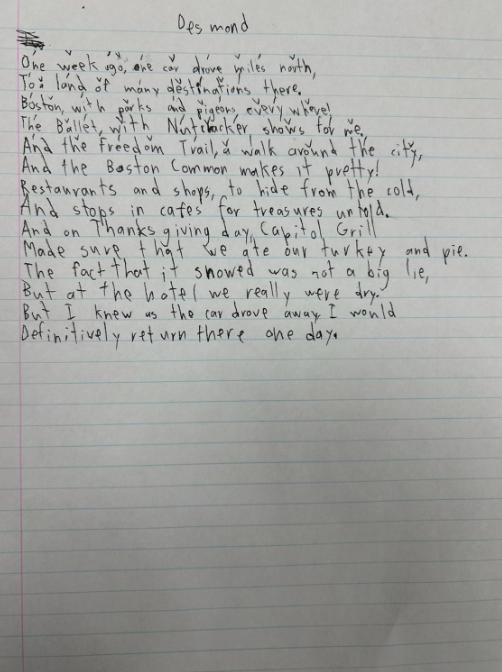 Desmond
One week ago, one car drove miles north,
To a land of many destinations there,
Boston, with parks and pigeons everywhere!
The Ballet, with Nutcracker shows for me.
And the Freedom Trail, a walk around the city,
And the Boston Common makes it pretty!
Restaurants and shops, to hide from the cold,
And stops in cafes for treasures untold.
And on Thanksgiving day, Capitol Grill
Made sure that we ate our turkey and pie.
The fact that it snowed was not a big lie,
But at the hotel we really were dry.
But I knew as the car drove away I would
Definitively return there one day.